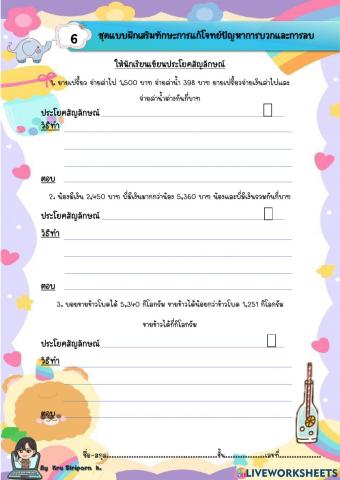 6
ชุดแบบฝึกเสริมทักษะการแก้โจทย์ปัญหาการบวกและการลบ
ให้นักเรียนเขียนประโยคสัญลักษณ์
1. ยายเปรี้ยว จ่ายค่าไป 1,500 บาท จ่ายค่าน้ำ 398 บาท ยายเปรี้ยวจ่ายเงินค่าไปและ
จ่ายค่าน้ำต่างกันกี่บาท
ประโยคสัญลักษณ์
วิธีทำ
ตอบ
2. น้องมีเงิน 2,450 บาท พี่มีเงินมากกว่าน้อง 5,360 บาท น้องและพี่มีเงินรวมกันกี่บาท
ประโยคสัญลักษณ์
วิธีทำ
ตอบ
3. บอยขายข้าวโพดได้ 5,340 กิโลกรัม ขายข้าวได้น้อยกว่าข้าวโพด 1,251 กิโลกรัม
ขายข้าวได้กี่กิโลกรัม
ประโยคสัญลักษณ์
วิธีทำ
ตอบ
ชื่อ-สกุล..........................................ชั้น..................เลขที่..............
By Kru Siriporn k.
LIVEWORKSHEETS